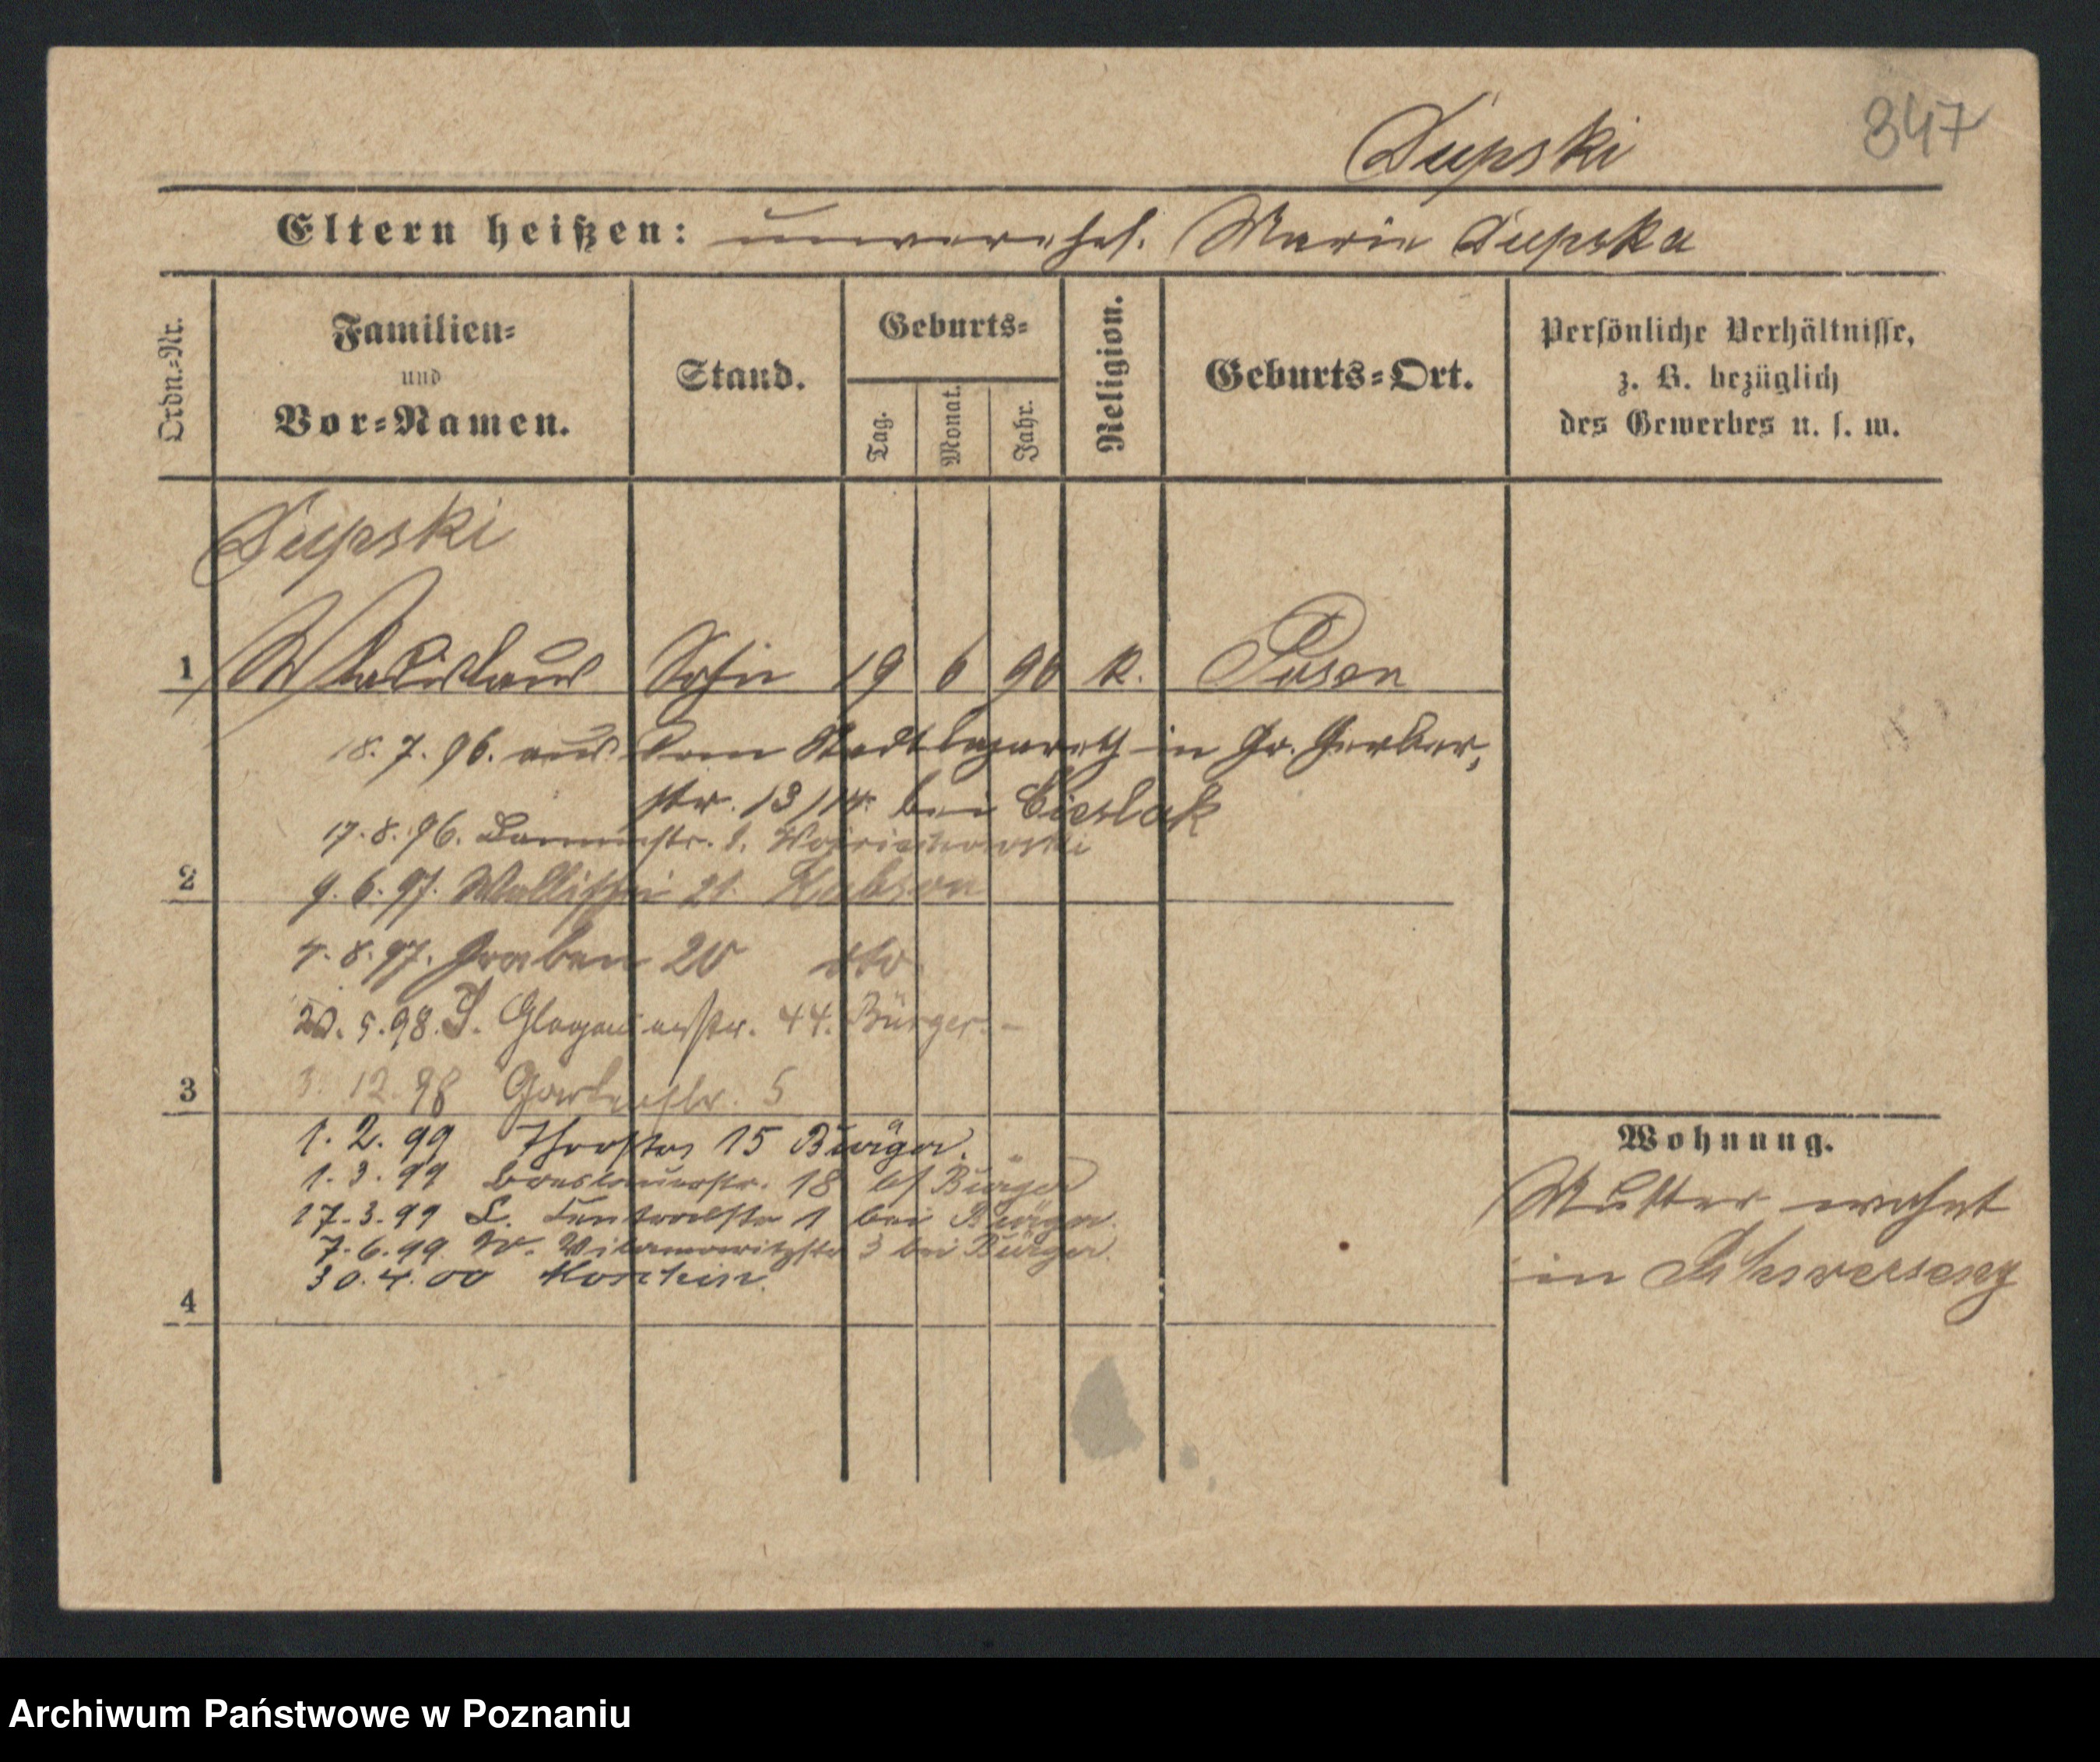 347
Dupski
Eltern heißen: unverehel. Marie Dupska
Ordn.-Nr.
Familien-
und
Vor-Namen.
Stand.
Geburts-
Tag.
Monat.
Jahr.
Religion.
Geburts-Ort.
Persönliche Verhältnisse,
z. B. bezüglich
des Gewerbes u. s. w.
Dupski
1 Wladislaus Sohn 19 6 96 k. Posen
18. 7. 96. aus dem Stadtlazareth in Gr. Gerber,
str. 13/14. bei Cieslak
17. 8. 96. Dammstr. 1. Wojciechowski
2
9. 6. 97. Wallischei 21. Kubson
4. 8. 97. Graben 20 dto
20. 5. 98. J. Glogauerstr. 44. Bürger.
3
3. 12. 98 Gartenstr. 5
1. 2. 99 Thorstr 15 Bürger.
1. 3. 99 Breslauerstr. 18 bei Bürger
17. 3. 99 L. Centralstr 1 bei Bürger.
7. 6. 99 W. Wilamowitzstr 3 bei Bürger.
30. 4. 00 Moschin.
4
Wohnung.
Mutter wohnt
in Schwersenz
Archiwum Państwowe w Poznaniu